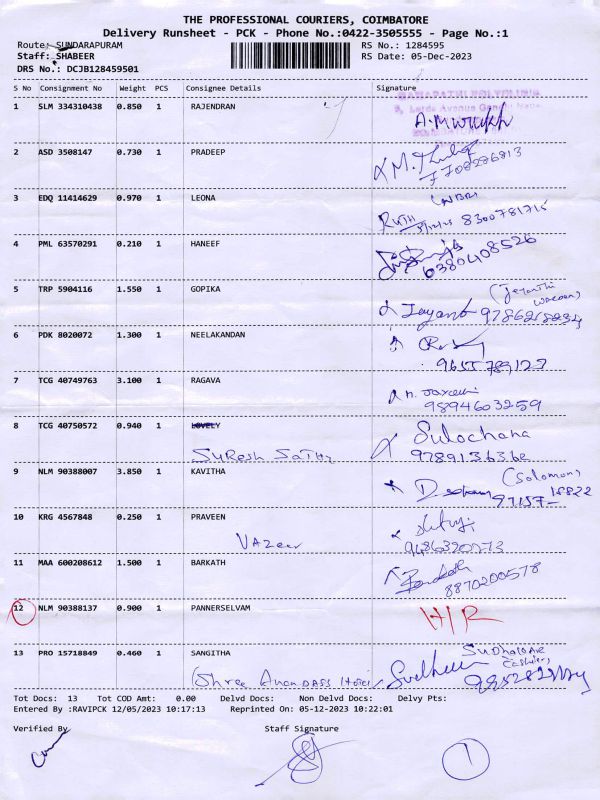 THE PROFESSIONAL COURIERS, COIMBATORE
Delivery Runsheet - PCK - Phone No.:0422-3505555 - Page No.:1
Route: SUNDARAPURAM
RS No.: 1284595
Staff: SHABEER
RS Date: 05-Dec-2023
DRS No.: DCJB128459501
S No Consignment No Weight PCS Consignee Details Signature
1 SLM 334310438 0.850 1 RAJENDRAN
2 ASD 3508147 0.730 1 PRADEEP
7708286813
3 EDQ 11414629 0.970 1 LEONA
RUTH 8300781715
4 PML 63570291 0.210 1 HANEEF
6380408526
5 TRP 5904116 1.550 1 GOPIKA
Jayanthi
6 PDK 8020072 1.300 1 NEELAKANDAN
9655789127
7 TCG 40749763 3.100 1 RAGAVA
9894603259
8 TCG 40750572 0.940 1 LOVELY Sulochana
Suresh
9 NLM 90388007 3.850 1 KAVITHA (Solomon)
10 KRG 4567848 0.250 1 PRAVEEN
Vazeer
11 MAA 600208612 1.500 1 BARKATH
8870200578
12 NLM 90388137 0.900 1 PANNERSELVAM H/R
13 PRO 15718849 0.460 1 SANGITHA
(Shree Anandass
Tot Docs: 13 Tot COD Amt: 0.00 Delvd Docs: Non Delvd Docs: Delvy Pts:
Entered By :RAVIPCK 12/05/2023 10:17:13 Reprinted On: 05-12-2023 10:22:01
Verified By Staff Signature
1